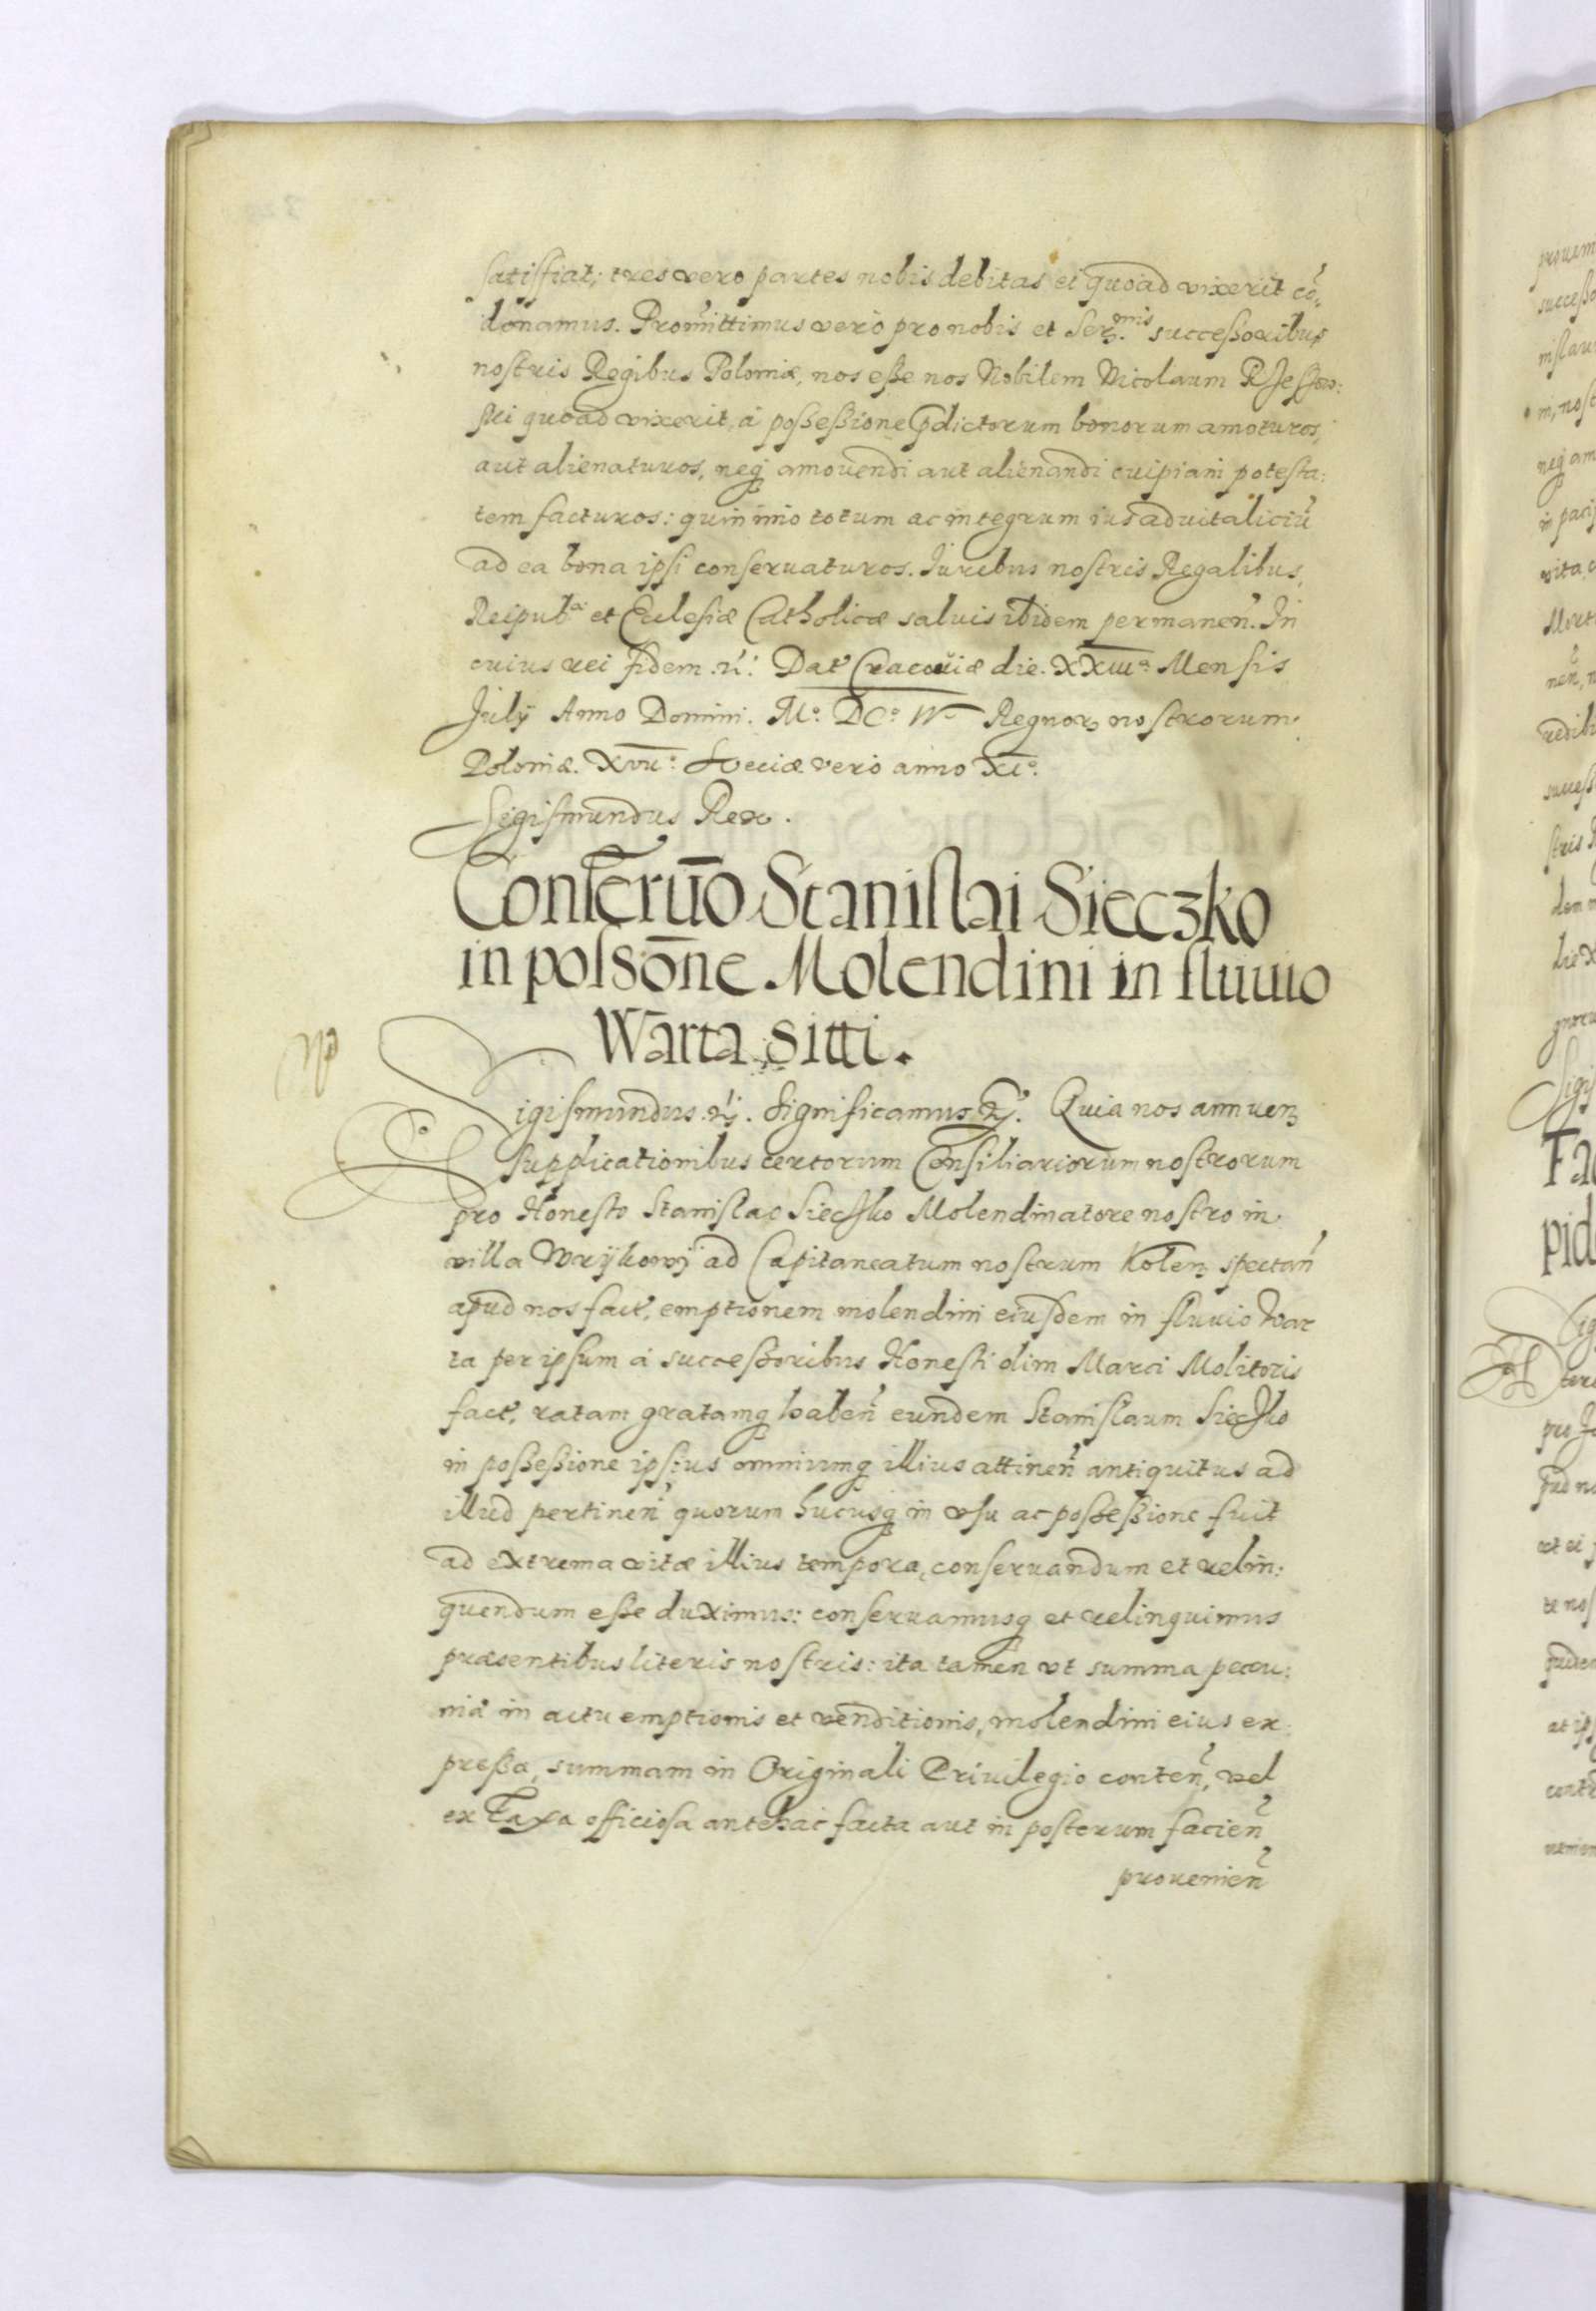 satisfiat; tres vero partes nobis debitas ei quoad vixerit cõ,
donamus. Promittimus vero pro nobis et Ser.mis successoribus
nostris Regibus Poloniæ, nos esse nos Nobilem Nicolaum
ski quoad vixerit, à possessione p̃dictorum bonorum amoturos,
aut alienaturos, neq̃ amovendi aut alienandi cuipiam potesta:
tem facturos: quin imo totum ac integrum ius advitaliciũ
ad ea bona ipsi conservaturos. Iuribus nostris Regalibus,
Reipub.æ et Ecclesiæ Catholicæ salvis ibidem permaneñ. In
cuius rei fidem. Dat' Cracoviæ die. XXIII.a Mensis
July Anno Domini. M.o DC.o IV.o Regnorȝ nostrorum
Poloniæ. XVII.o Sveciæ vero anno XI.o
Sigismundus Rex.
Conservõ Stanislai Sieczko
in possõne Molendini in fluvio
Warta sitti.
Sigismundus. Significamus. Quia nos annuenȝ
supplicationibus certorum Consiliariorum nostrorum
pro Honesto Stanislao Sieczko Molendinatore nostro in
villa ad Capitaneatum nostrum Kolenȝ spectañ
apud nos fact', emptionem molendini eiusdem in fluvio War
ta per ipsum à successoribus Honesti olim Marci Molitoris
fact', ratam gratamq̃ habeñ eundem Stanislaum Sieczko
in possessione ipsius omniumq̃ illius attineñ antiquitus ad
illud pertineñ quorum hucusq̃ in vsu ac possessione fuit
ad extrema vitæ illius tempora, conservandum et relin:
quendum esse duximus: conservamusq̃ et relinquimus
præsentibus literis nostris: ita tamen vt summa pecu:
niæ in actu emptionis et venditionis, molendini eius ex:
pressa, summam in Originali Privilegio conteñ, vel
ex Taxa officiosa antehac facta aut in posterum facieñ
provenieñ